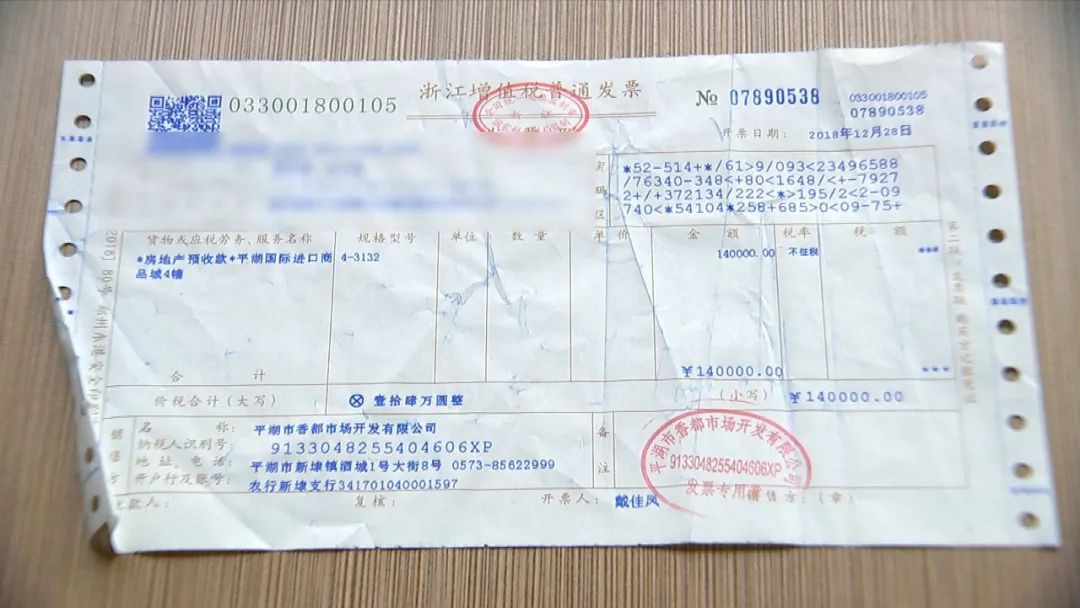 浙江增值税普通发票
033001800105
№ 07890538
033001800105
07890538
开票日期: 2018年12月28日
*52-514+*/61>9/093<23496588
/76340-348<+80<1648/<+-7927
2+/+372134/222<*>195/2<2-09
740<*54104*258+685>0<09-75+
货物或应税劳务、服务名称 规格型号 单位 数量 单价 金额 税率 税额
*房地产预收款*平湖国际进口商 4-3132 140000.00 不征税 ***
品城4幢
合计 ¥140000.00 ***
价税合计(大写) ⊗ 壹拾肆万圆整 (小写) ¥140000.00
名称: 平湖市香都市场开发有限公司
纳税人识别号: 9133048255404606XP
地址、电话: 平湖市新埭镇酒城1号大街8号 0573-85622999
开户行及账号: 农行新埭支行341701040001597
备注
平湖市香都市场开发有限公司
9133048255404606XP
发票专用章
复核: 开票人: 戴佳凤 销售方:(章)